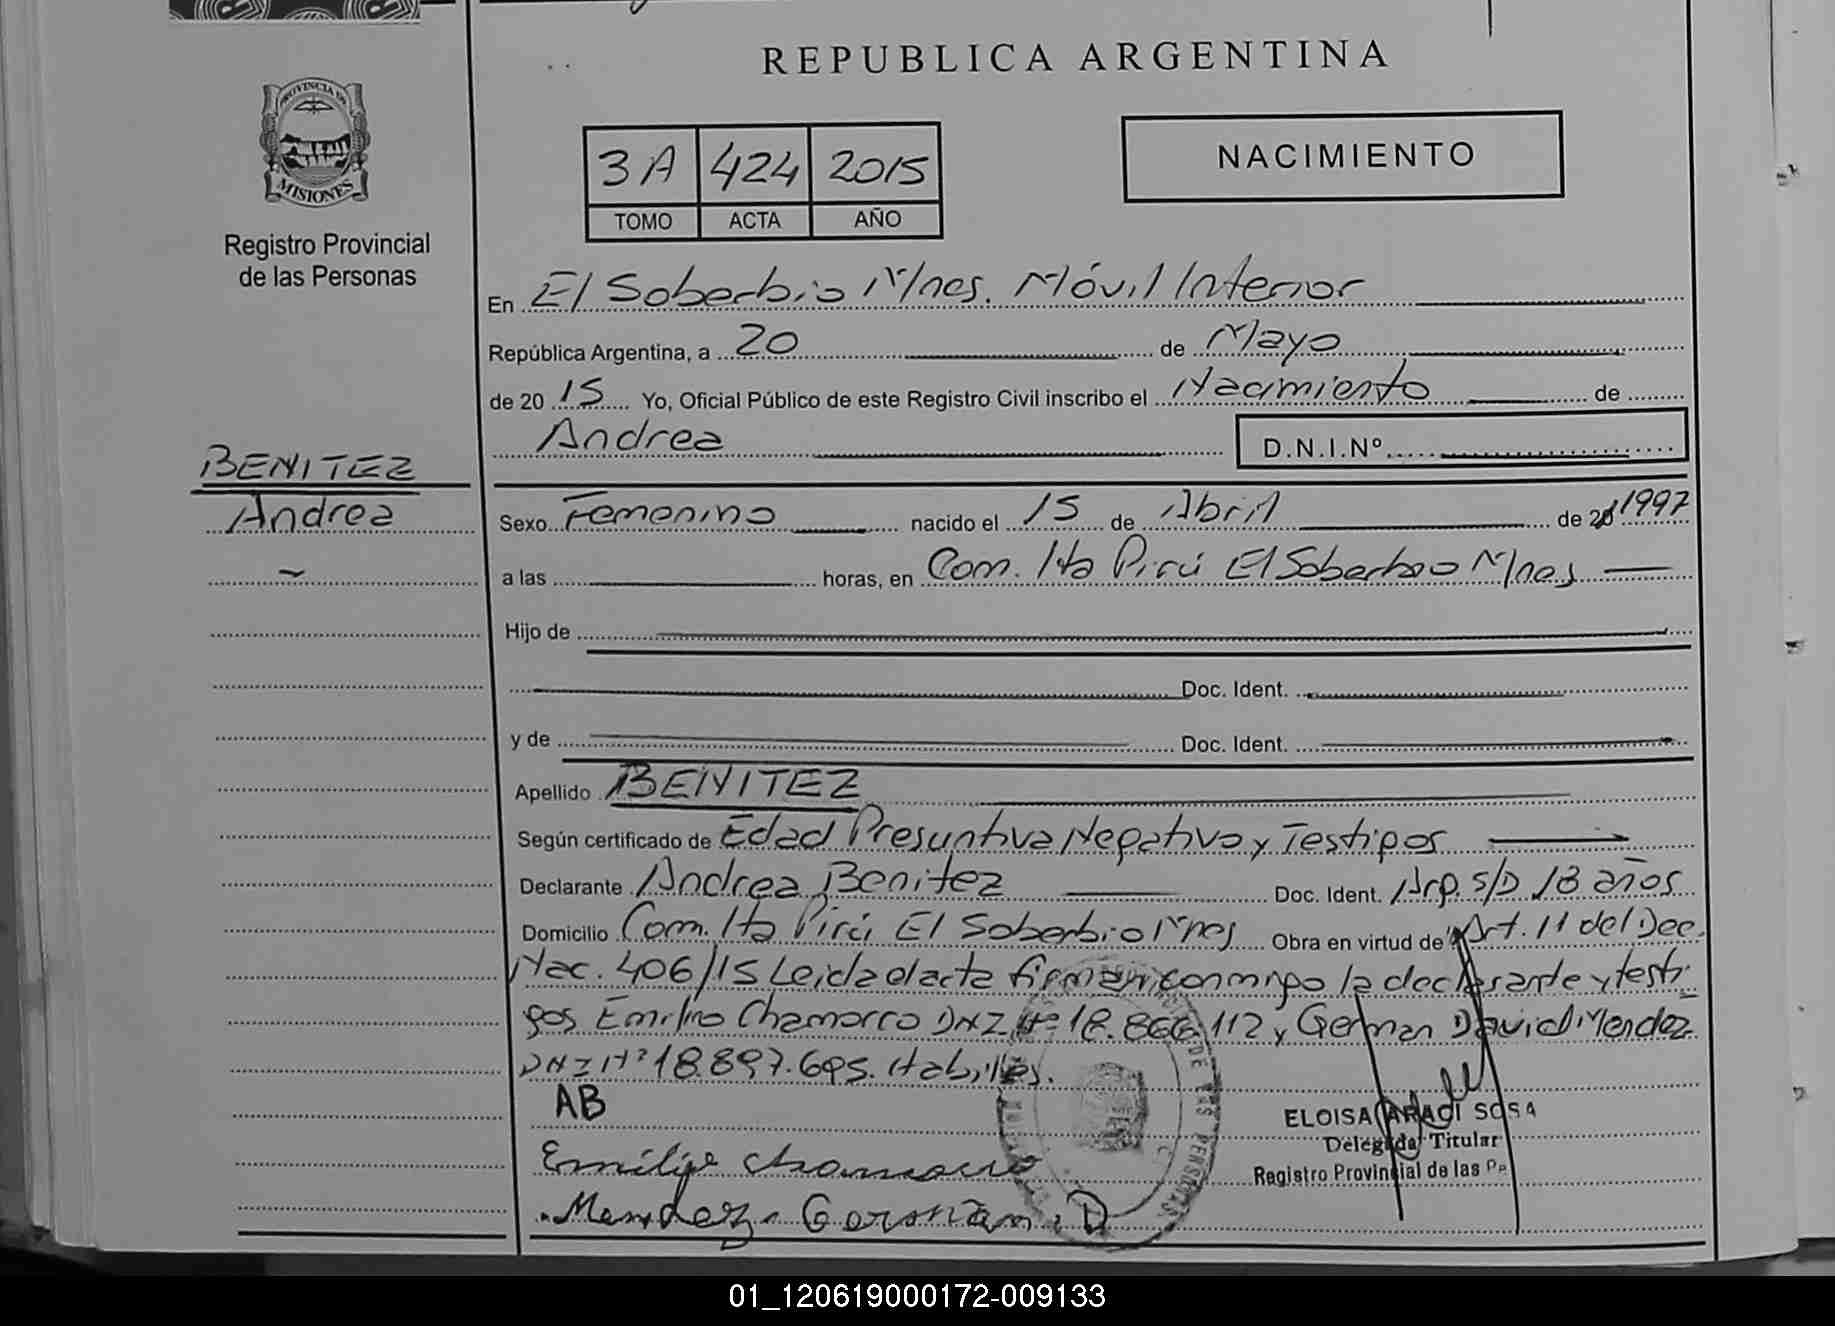 REPUBLICA ARGENTINA
PROVINCIA DE
MISIONES
Registro Provincial
de las Personas
3A 424 2015
TOMO ACTA AÑO
NACIMIENTO
En El Soberbio Mnes. Móvil Interior
República Argentina, a 20 de Mayo
de 20 15 Yo, Oficial Público de este Registro Civil inscribo el Nacimiento de
Andrea D.N.I.Nº
BENITEZ
Andrea
Sexo Femenino nacido el 15 de Abril de 20 1997
a las horas, en Com. Ita Pirú El Soberbio Mnes
Hijo de
Doc. Ident.
y de Doc. Ident.
Apellido BENITEZ
Según certificado de Edad Presuntiva Negativo y Testigos
Declarante Andrea Benitez Doc. Ident. Arg. S/D 18 años
Domicilio Com. Ita Pirú El Soberbio Mnes Obra en virtud de Art. 11 del Dec.
Nac. 406/15 Leida el acta firman conmigo la declarante y testi
gos Emilio Chamorro DNI Nº 18.866.112 y German David Mendez
DNI Nº 18.897.695. Habiles.
AB
ELOISA ARACI SOSA
Delegada Titular
Registro Provincial de las Pe
Emilio Chamorro
Mendez German D
DE LAS PERSONAS
01_120619000172-009133